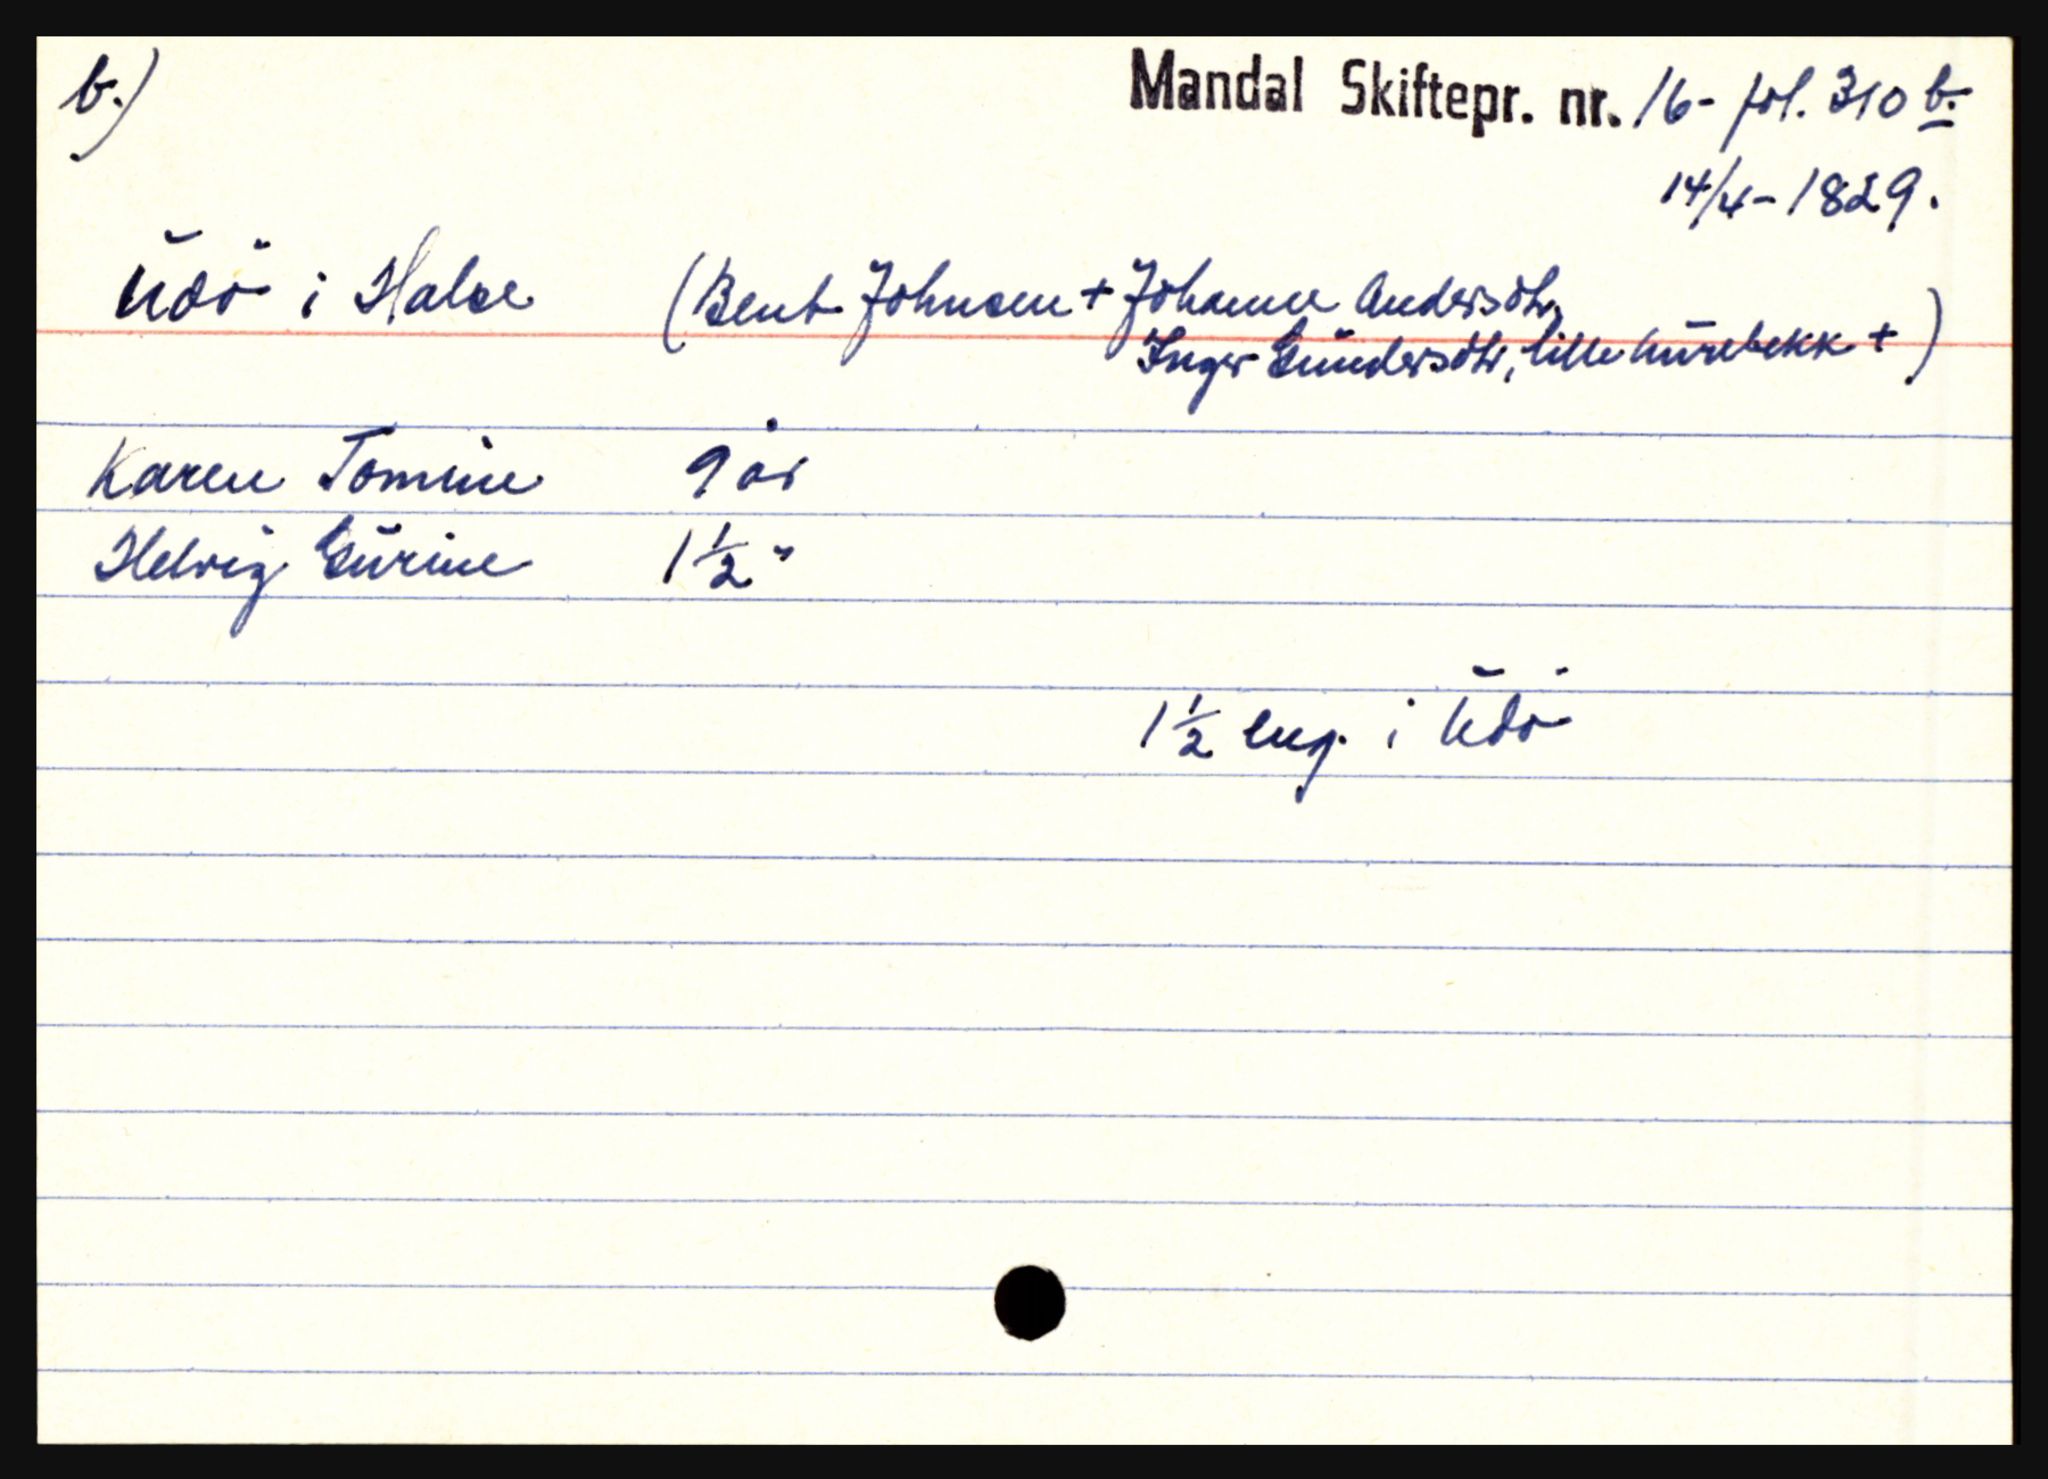 b.)
Mandal Skiftepr. nr. 16- fol. 310 b.
14/4-1829.
Udö i Halse (Bent Johnsen + Johanne Andersdtr,
Inger Gundersdtr, lille +)
Karen Tomine 9 år
Helvig Gurine 1 1/2 "
1 1/2 eng. i Udö